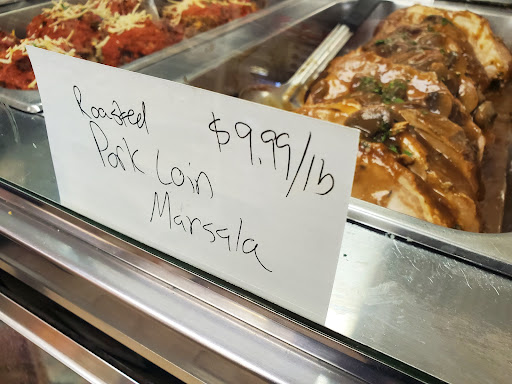 Roasted
Pork Loin
Marsala
$9.99/lb